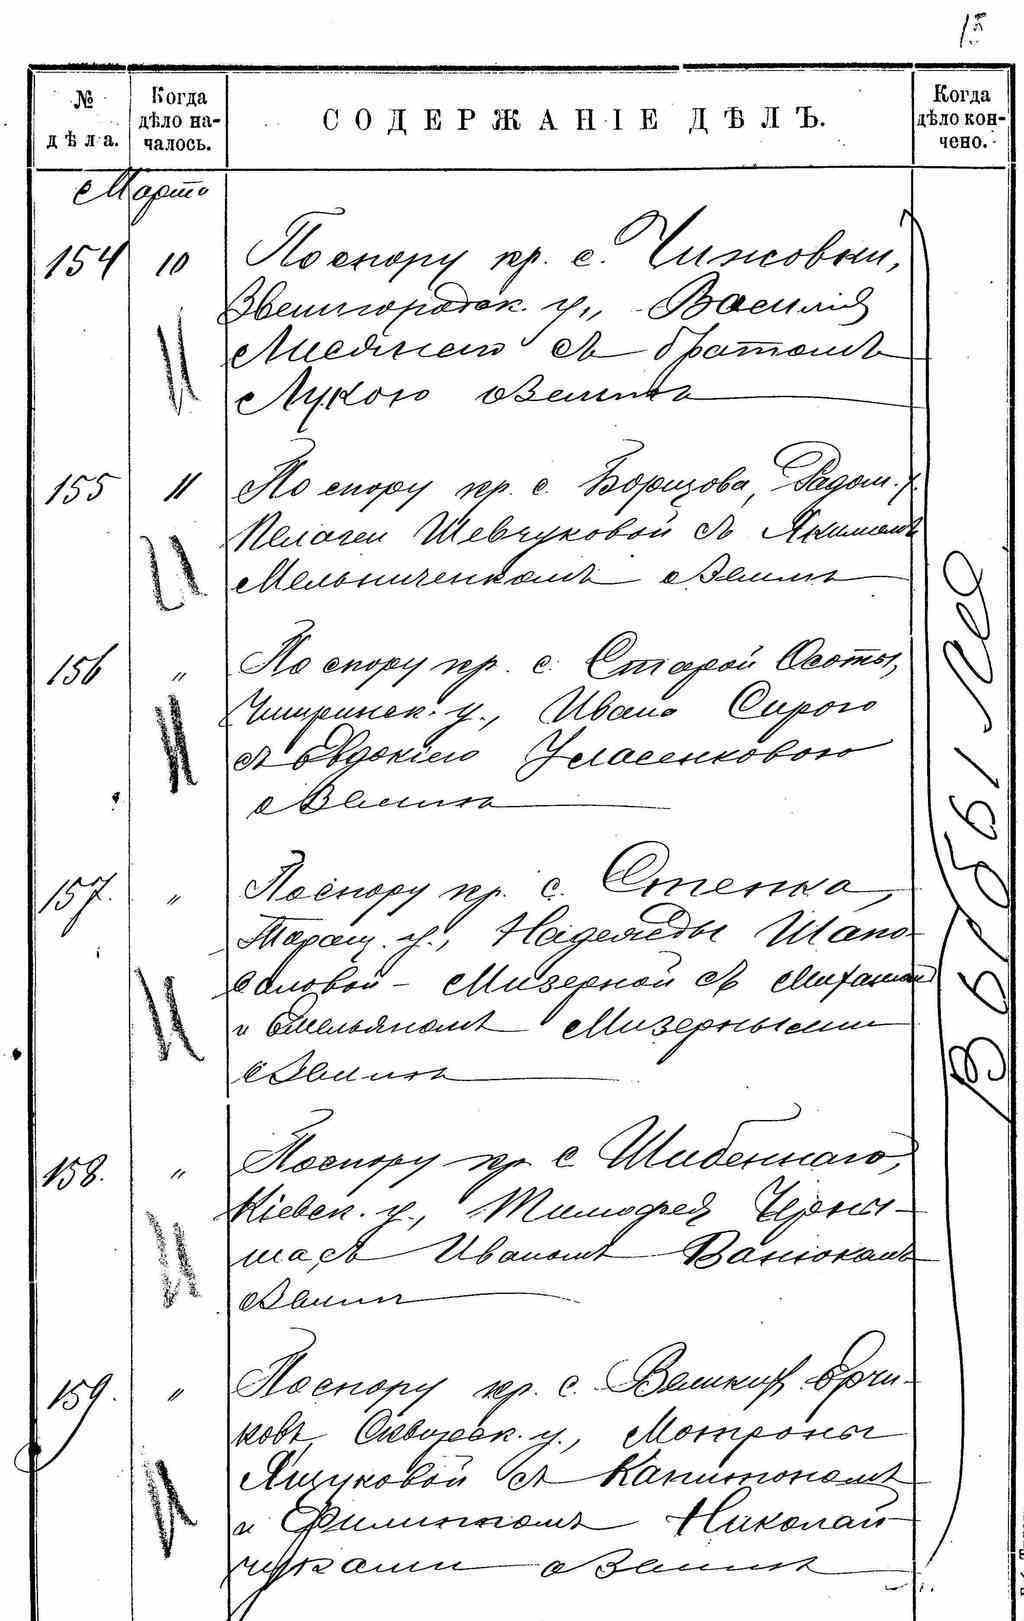 15
№ дѣла.
Когда дѣло началось.
СОДЕРЖАНІЕ ДѢЛЪ.
Когда дѣло кончено.
Марта
154 10 По спору кр. с. Чижовки,
Звенигородск. у., Василія
Лисянскаго съ братомъ
Лукою о землѣ
155 11 По спору кр. с. Борщова, Радом. у.
Пелагеи Шевчуковой съ Якимомъ
Мельниченкомъ о землѣ
156 " По спору кр. с. Старой Осоты,
Чигиринск. у., Ивана Сирого
съ Евдокіею Уласенковою
о землѣ
157. " По спору кр. с. Стенка,
Таращ. у., Надежды Шапо-
валовой - Мизерной съ Михаиломъ
и Емельяномъ Мизерными
о землѣ
158. " По спору кр. с. Шибеннаго,
Кіевск. у., Тимофея Черны-
ша съ Иваномъ Ванюкомъ
о землѣ
159. " По спору кр. с. Великихъ Ерчи-
ковъ, Сквирск. у., Мотроны
Ящуковой съ Капитономъ
и Филиппомъ Николай-
чуками о землѣ
Выбыли